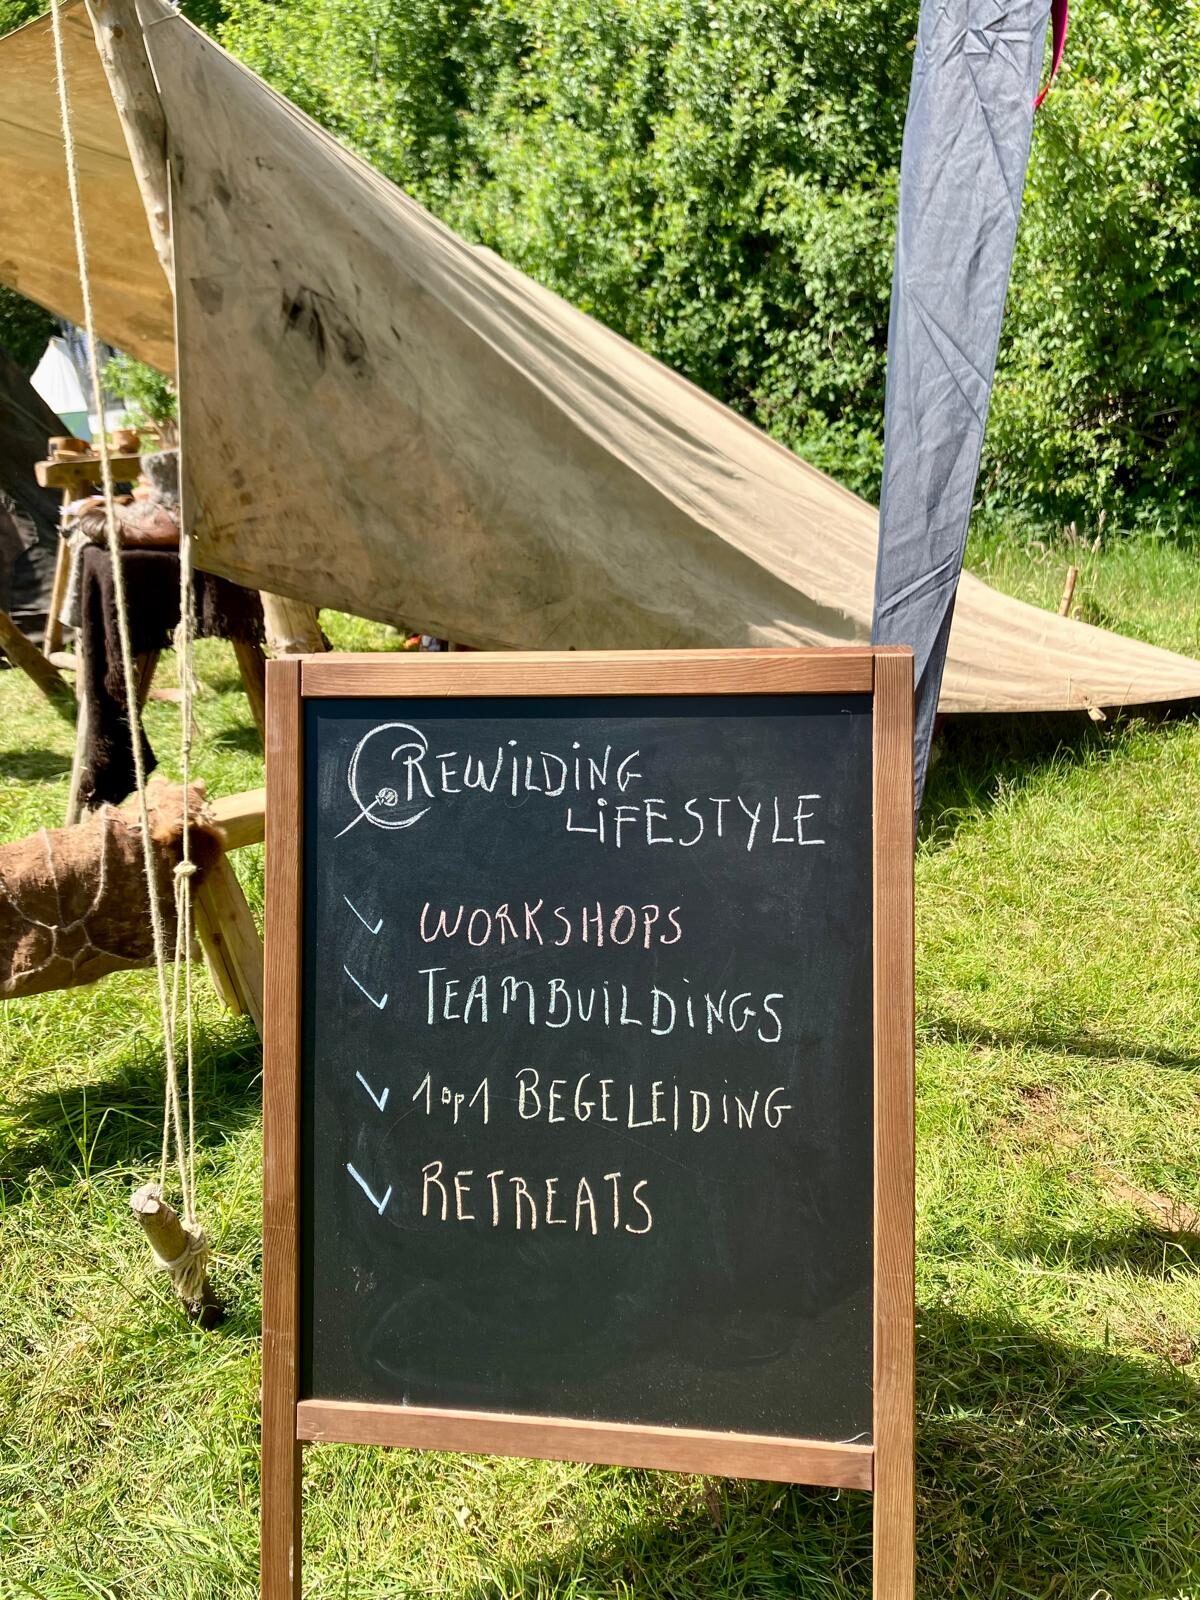 REWILDING
LIFESTYLE
WORKSHOPS
TEAMBUILDINGS
1op1 BEGELEIDING
RETREATS